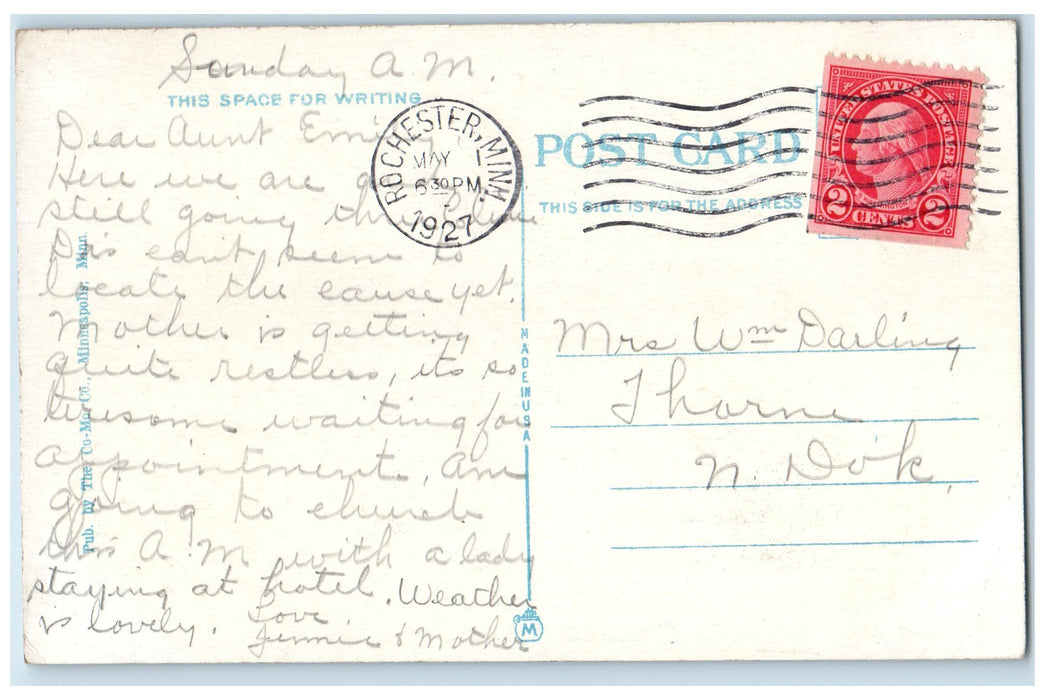 Sunday A.M.
THIS SPACE FOR WRITING
Dear Aunt Emily,
Here we are
still going thru
Drs can't seem to
locate the cause yet.
Mother is getting
quite restless, its so
tiresome waiting for
appointments, am
going to church
this A.M. with a lady
staying at hotel. Weather
is lovely. Love
Jennie & Mother
Pub. by The Co-Mo Co., Minneapolis, Minn.
ROCHESTER, MINN.
MAY
6 30 PM
1927
MADE IN USA
M
POST CARD
THIS SIDE IS FOR THE ADDRESS
UNITED STATES POSTAGE
WASHINGTON
2 CENTS 2
Mrs Wm Darling
Thorne
N. Dak.